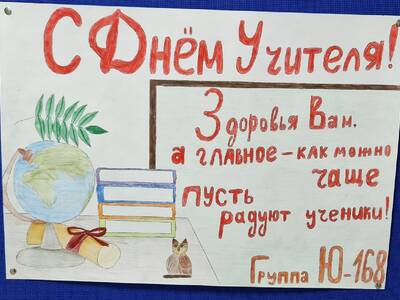 С Днём Учителя!
Здоровья Вам,
а главное – как можно
чаще
пусть
радуют ученики!
Группа Ю-168